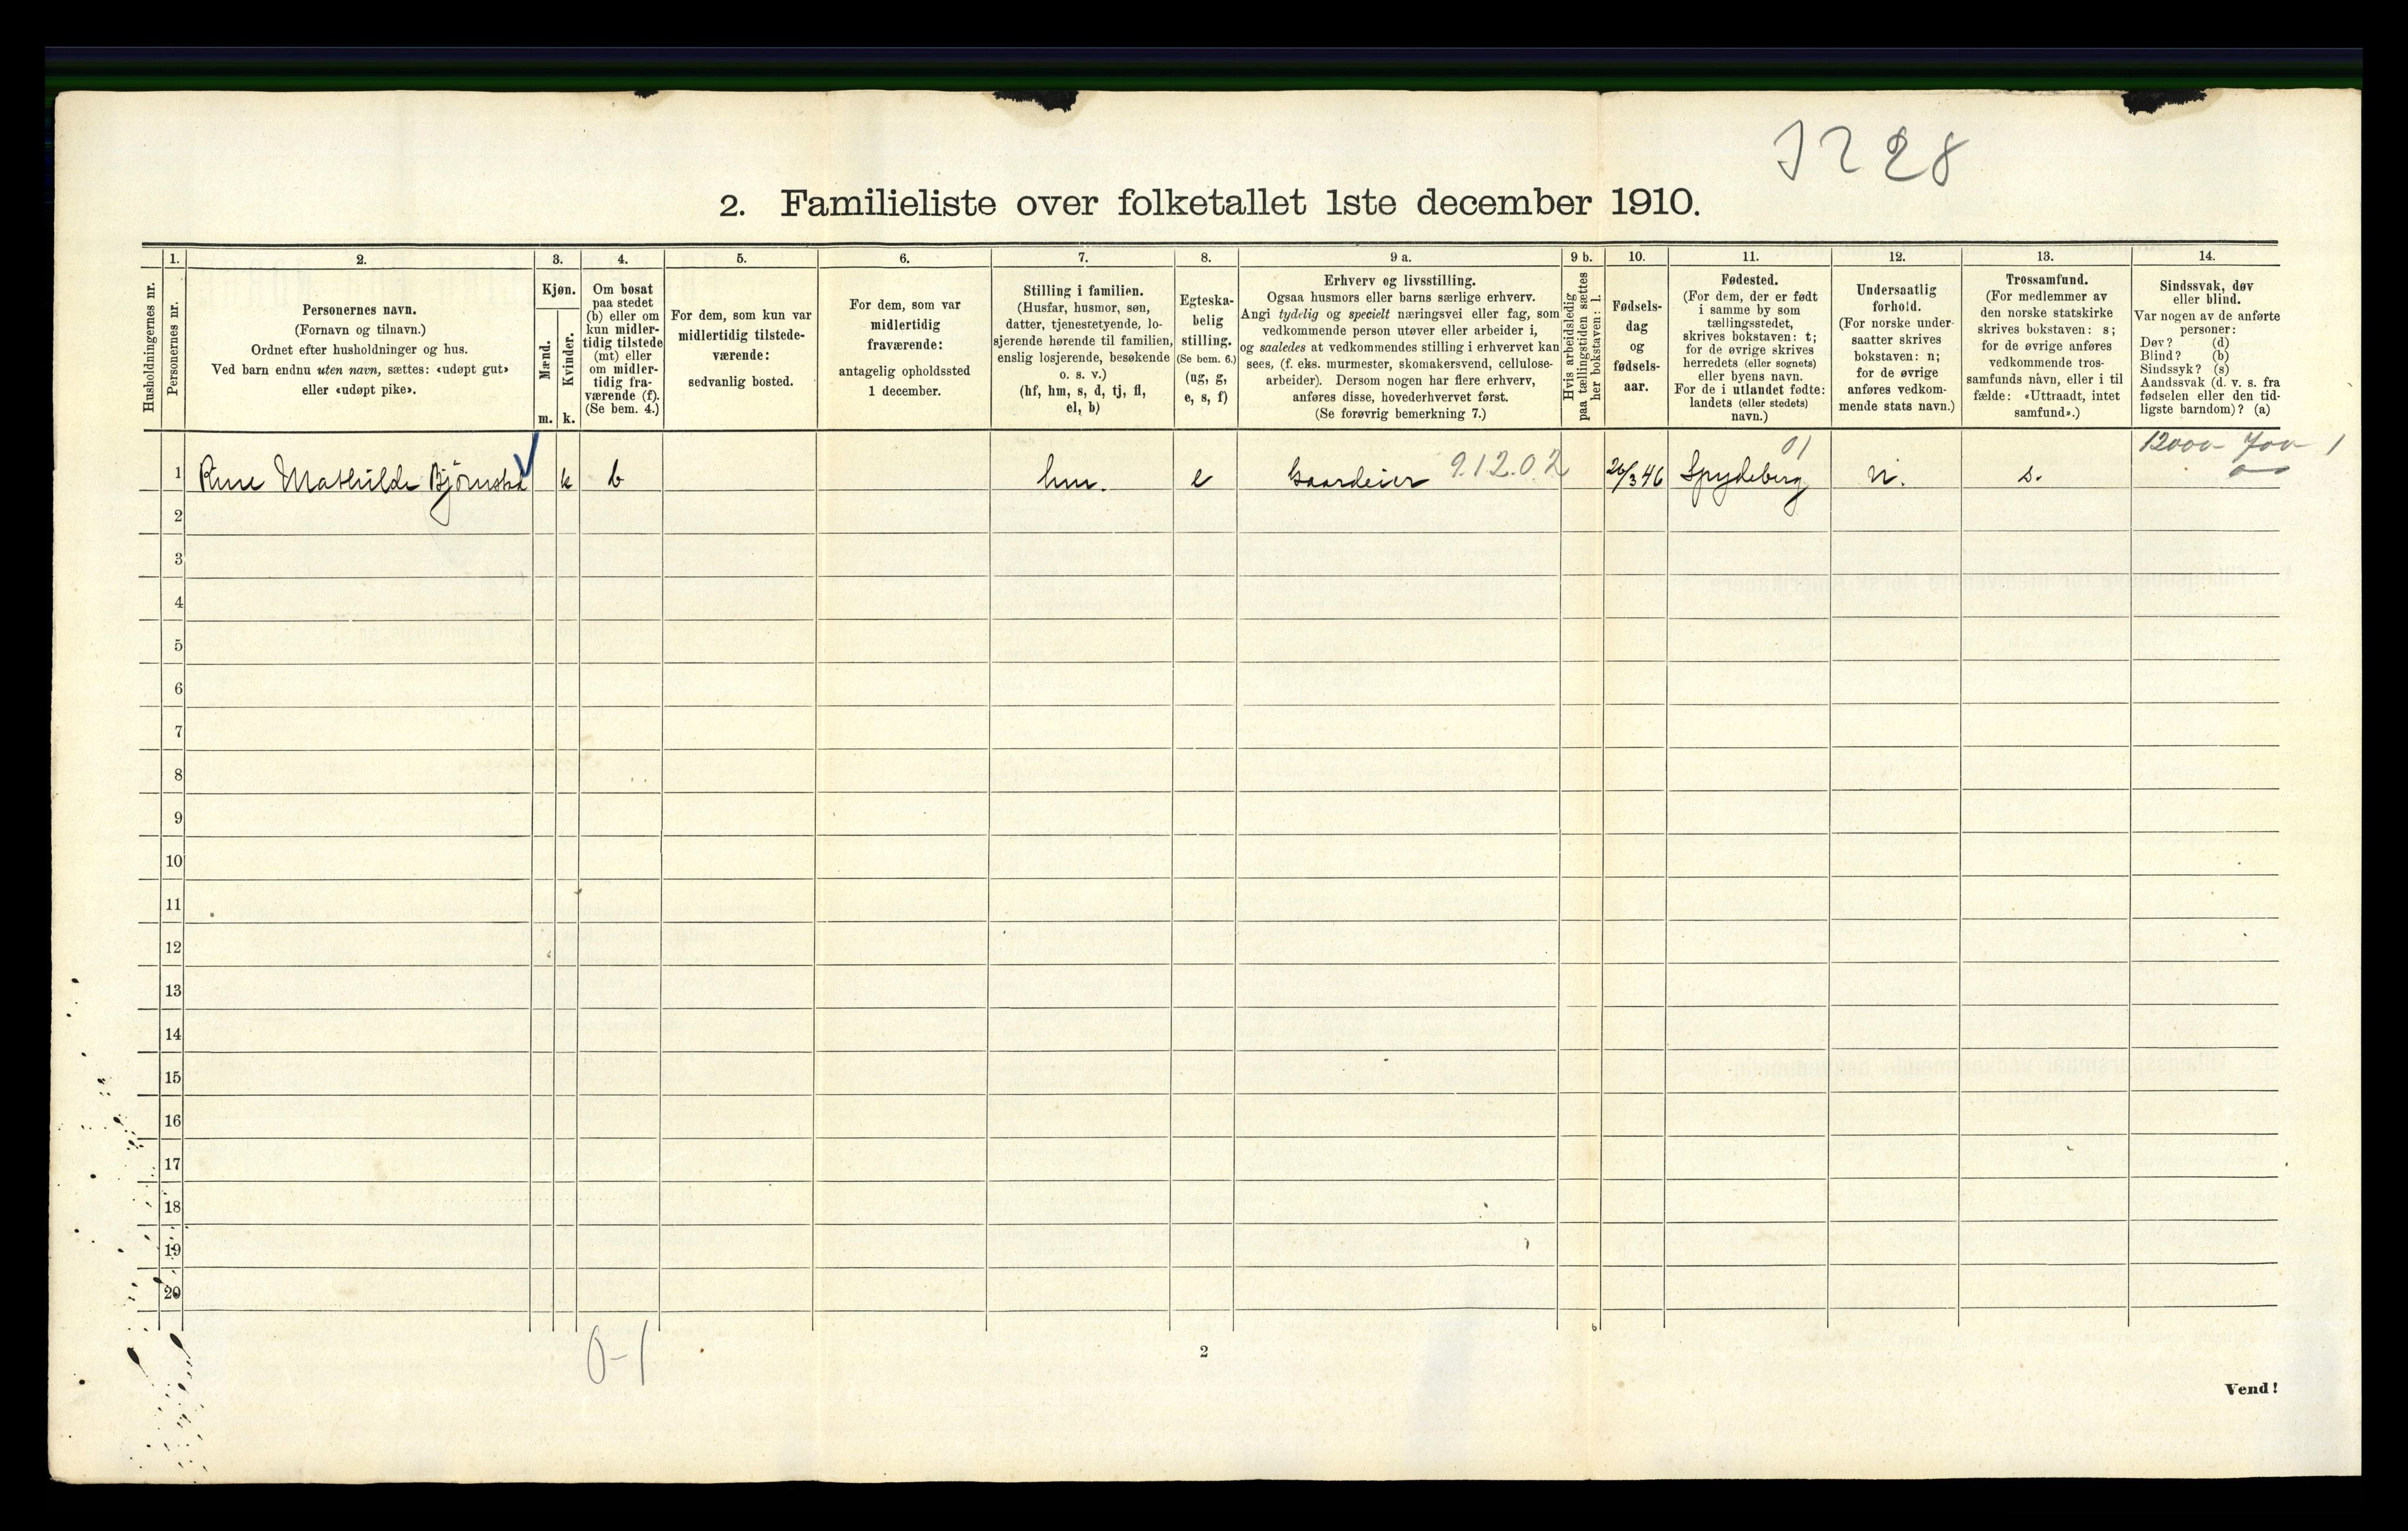 2. Familieliste over folketallet 1ste december 1910.
Husholdningernes nr.
1.
Personernes nr.
2.
Personernes navn.
(Fornavn og tilnavn.)
Ordnet efter husholdninger og hus.
Ved barn endnu uten navn, sættes: «udøpt gut»
eller «udøpt pike».
3.
Kjøn.
Mænd.
m.
Kvinder.
k.
4.
Om bosat
paa stedet
(b) eller om
kun midler-
tidig tilstede
(mt) eller
om midler-
tidig fra-
værende (f).
(Se bem. 4.)
5.
For dem, som kun var
midlertidig tilstede-
værende:
sedvanlig bosted.
6.
For dem, som var
midlertidig
fraværende:
antagelig opholdssted
1 december.
7.
Stilling i familien.
(Husfar, husmor, søn,
datter, tjenestetyende, lo-
sjerende hørende til familien,
enslig losjerende, besøkende
o. s. v.)
(hf, hm, s, d, tj, fl,
el, b)
8.
Egteska-
belig
stilling.
(Se bem. 6.)
(ug, g,
e, s, f)
9 a.
Erhverv og livsstilling.
Ogsaa husmors eller barns særlige erhverv.
Angi tydelig og specielt næringsvei eller fag, som
vedkommende person utøver eller arbeider i,
og saaledes at vedkommendes stilling i erhvervet kan
sees, (f. eks. murmester, skomakersvend, cellulose-
arbeider). Dersom nogen har flere erhverv,
anføres disse, hovederhvervet først.
(Se forøvrig bemerkning 7.)
9 b.
Hvis arbeidsledig
paa tællingstiden sættes
her bokstaven: l.
10.
Fødsels-
dag
og
fødsels-
aar.
11.
Fødested.
(For dem, der er født
i samme by som
tællingsstedet,
skrives bokstaven: t;
for de øvrige skrives
herredets (eller sognets)
eller byens navn.
For de i utlandet fødte:
landets (eller stedets)
navn.)
12.
Undersaatlig
forhold.
(For norske under-
saatter skrives
bokstaven: n;
for de øvrige
anføres vedkom-
mende stats navn.)
13.
Trossamfund.
(For medlemmer av
den norske statskirke
skrives bokstaven: s;
for de øvrige anføres
vedkommende tros-
samfunds navn, eller i til
fælde: «Uttraadt, intet
samfund».)
14.
Sindssvak, døv
eller blind.
Var nogen av de anførte
personer:
Døv? (d)
Blind? (b)
Sindssyk? (s)
Aandssvak (d. v. s. fra
fødselen eller den tid-
ligste barndom)? (a)
01
1 Mathilde k b hm. e Gaardeier 9.12.02 26/3 46 Spydeberg n. s.
2
3
4
5
6
7
8
9
10
11
12
13
14
15
16
17
18
19
20
0-1
2
Vend!